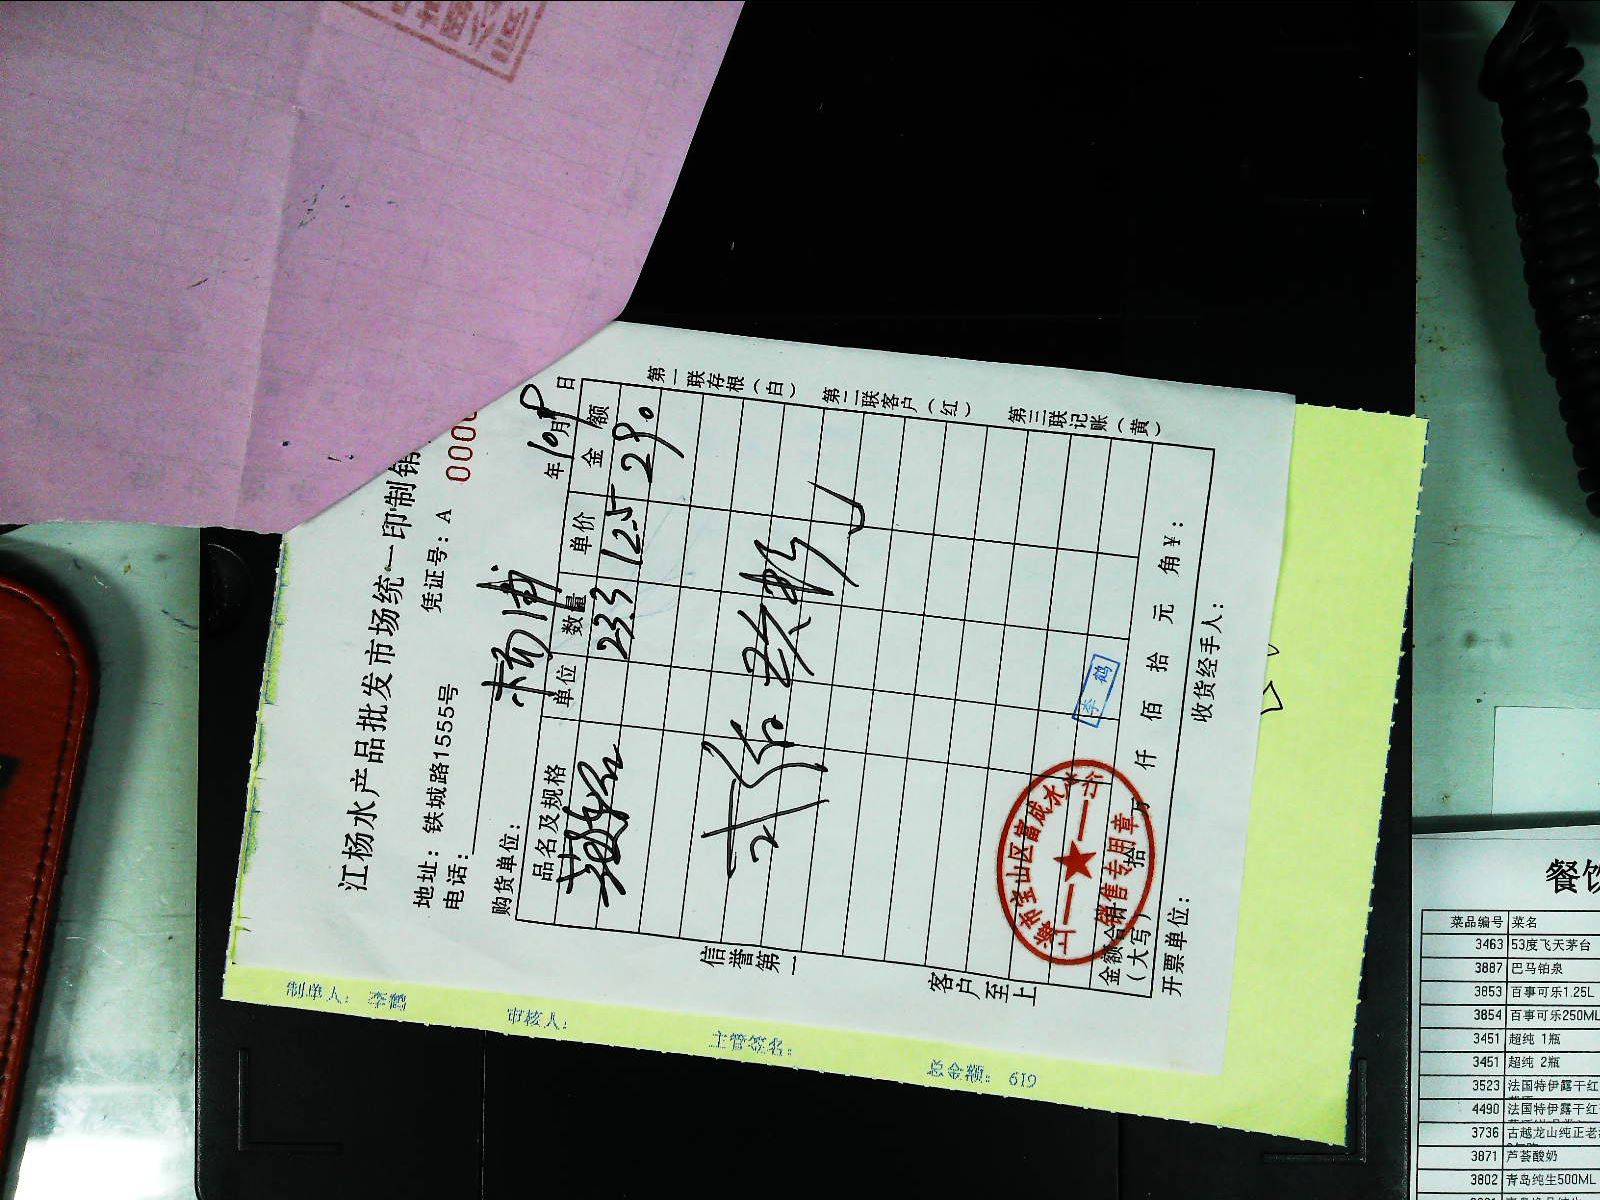 江杨水产品批发市场统一印制销
地址：铁城路1555号 凭证号：A 000
电话：
购货单位： 杨浦 年10月8日
品名及规格 单位 数量 单价 金额
23.3 12.5 290
第一联存根（白）
第二联客户（红）
第三联记账（黄）
信誉第一
客户至上
金额合
（大写） 拾 万 仟 佰 拾 元 角 ¥：
开票单位： 收货经手人：
李鹤
上海市宝山区富成水
销售专用章
制单人： 李鹤 审核人： 主管签名： 总金额： 619
餐饮
菜品编号 菜名
3463 53度飞天茅台
3887 巴马铂泉
3853 百事可乐1.25L
3854 百事可乐250ML
3451 超纯 1瓶
3451 超纯 2瓶
3523 法国特伊露干红
4490 法国特伊露干红
3736 古越龙山纯正老
3871 芦荟酸奶
3802 青岛纯生500ML